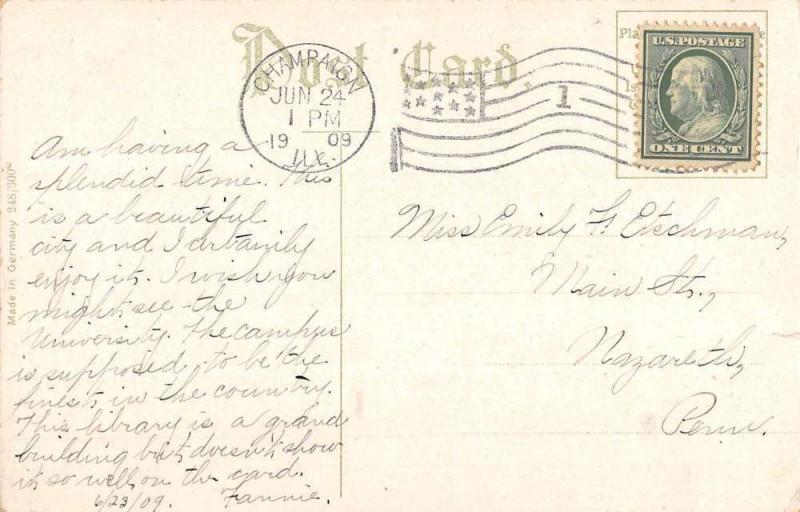 Post Card.
CHAMPAIGN
JUN 24
1 PM
19 09
ILL.
1
U.S. POSTAGE
ONE CENT
Am having a
splendid time. This
is a beautiful
city and I certainily
enjoy it. I wish you
might see the
University. The campus
is supposed to be the
finest in the country.
This library is a grand
building but doesn't show
it so well on the card.
6/23/09. Fannie.
Miss Emily F. Etschman,
Main St.,
Nazareth,
Penn.
Made in Germany 248/300